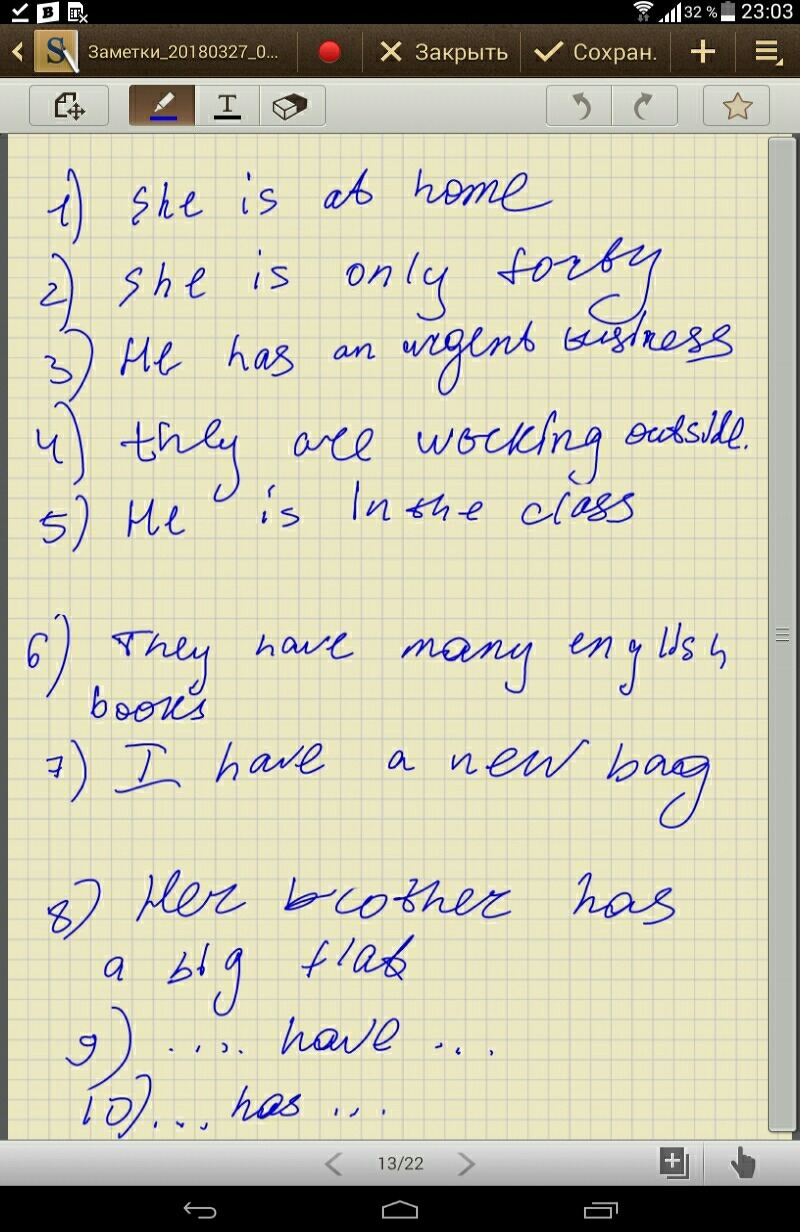 32 % 23:03
Заметки_20180327_0... Закрыть Сохран.
T
1) she is at home
2) she is only forty
3) He has an urgent business
4) they are working outside.
5) He is in the class
6) They have many english
books
7) I have a new bag
8) Her brother has
a big flat
9) .... have ...
10) ... has ...
13/22